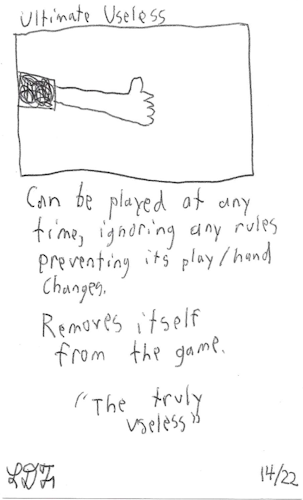 Ultimate Useless
Can be played at any
time, ignoring any rules
preventing its play/hand
changes.
Removes itself
from the game.
"The truly
useless"
14/22